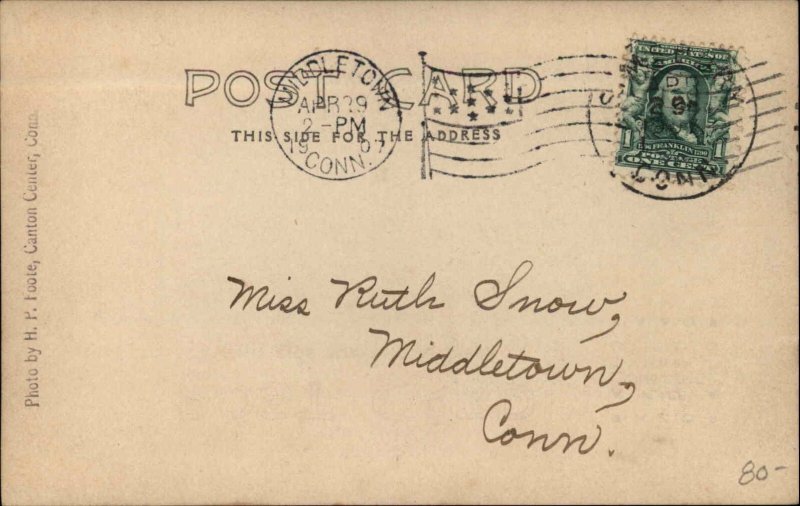 POST CARD
THIS SIDE FOR THE ADDRESS
MIDDLETOWN
APR 29
2-PM
1907
CONN.
UNITED STATES OF
AMERICA
FRANKLIN
POSTAGE
ONE CENT
CONN
Miss Ruth Snow,
Middletown,
Conn.
Photo by H. P. Foote, Canton Center, Conn.
80-